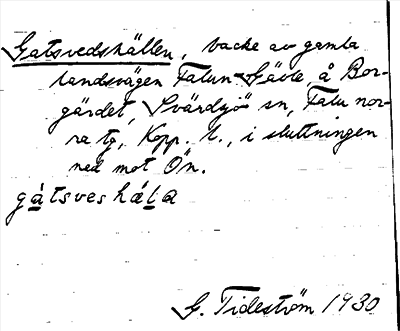 Gatsvedshällen, backe av gamla
landsvägen Falun-Gävle, å Bor-
gärdet, Svärdsjö sn, Falu nor-
ra tg, Kopp. l., i sluttningen
ned mot Ön.
gátsves hála
G. Tideström 1930